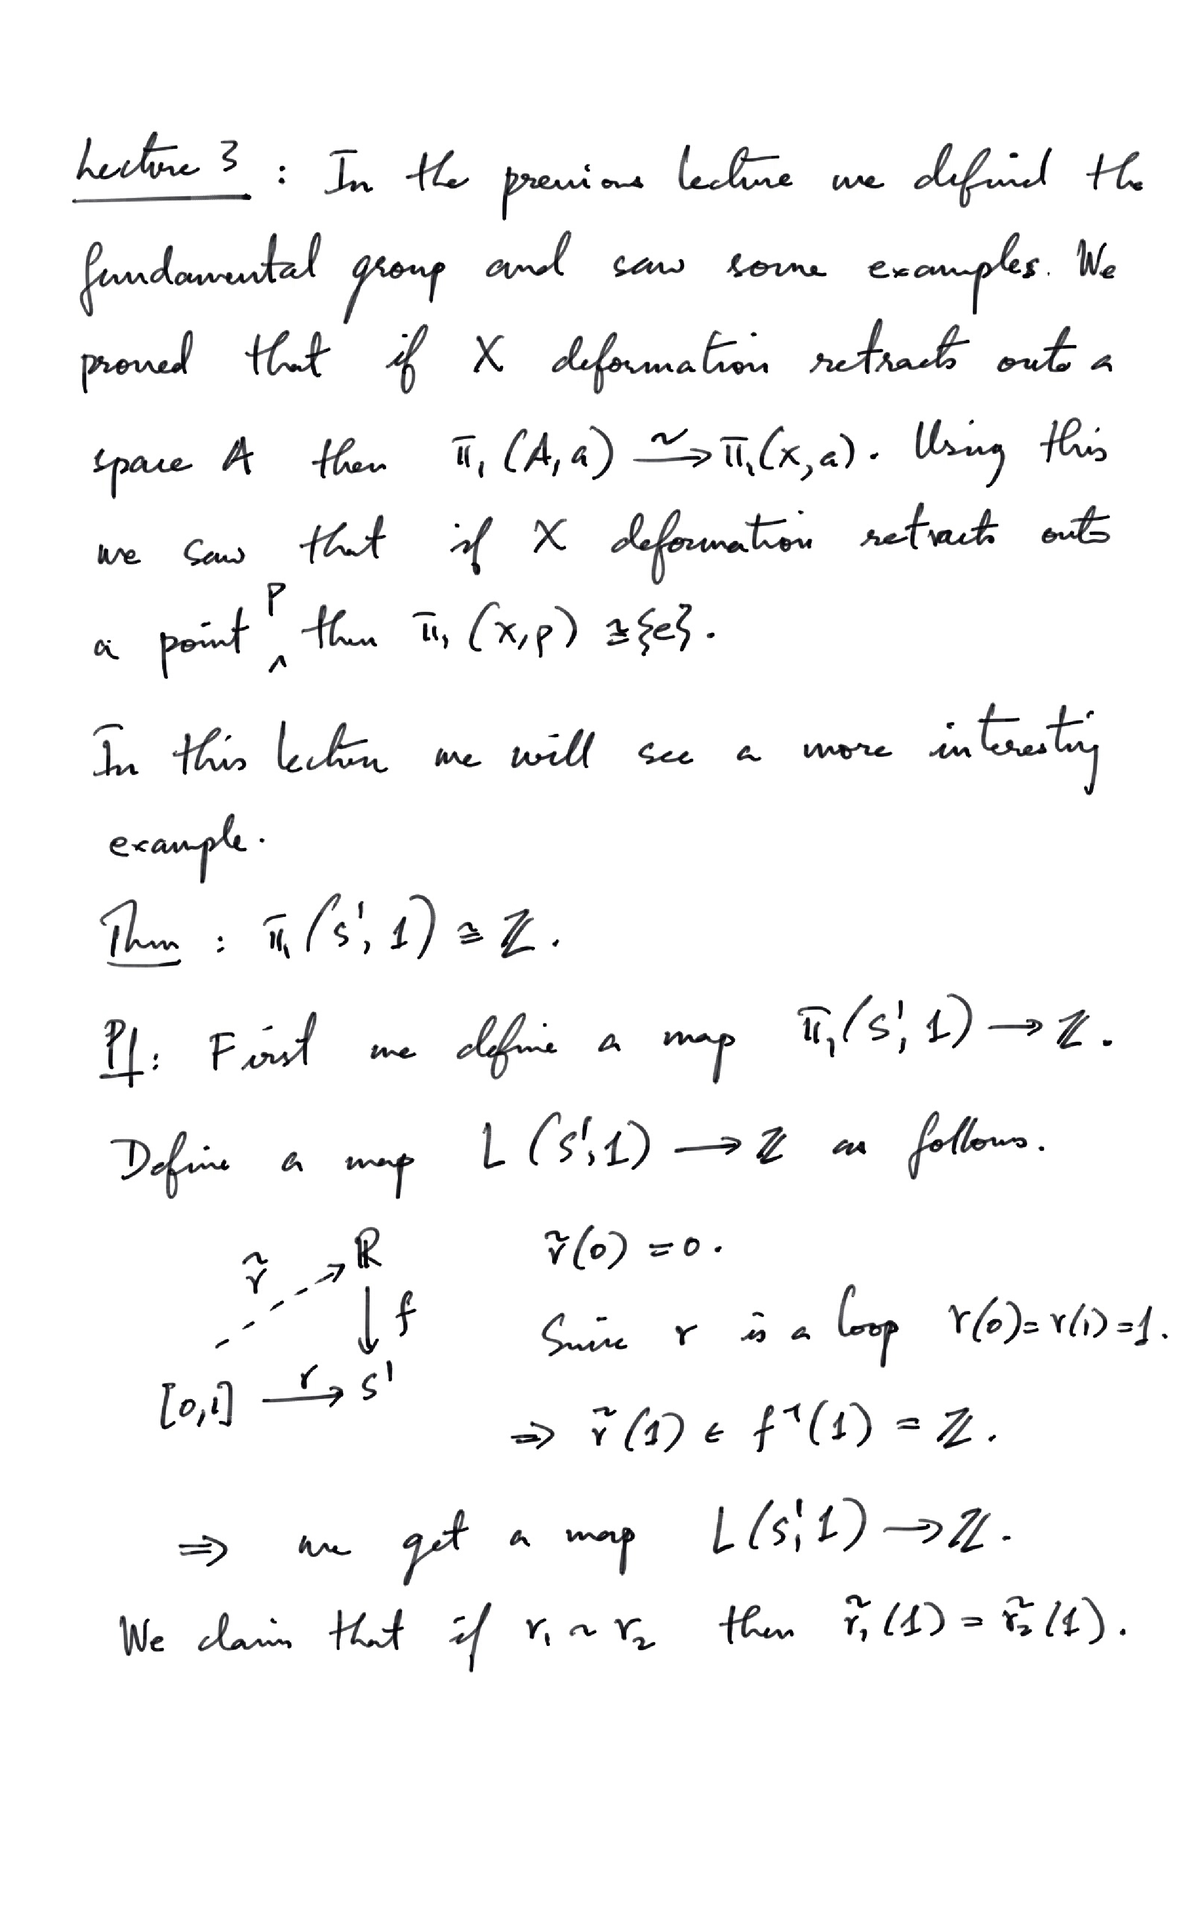 Lecture 3 : In the previous lecture we defined the
fundamental group and saw some examples. We
proved that if X deformation retracts onto a
space A then π₁(A,a) ⥲ π₁(X,a). Using this
we saw that if X deformation retracts onto
a point p then π₁(X,p) ≅ {e}.
In this lecture we will see a more interesting
example.
Thm : π₁(S¹,1) ≅ ℤ.
Pf: First we define a map π₁(S¹,1) → ℤ.
Define a map L(S¹,1) → ℤ as follows.
γ̃ ℝ γ̃(0) = 0.
f Since γ is a loop γ(0)=γ(1)=1.
[0,1] γ→ S¹
⇒ γ̃(1) ∈ f⁻¹(1) = ℤ.
⇒ we get a map L(S¹,1) → ℤ.
We claim that if γ₁ ~ γ₂ then γ̃₁(1) = γ̃₂(1).